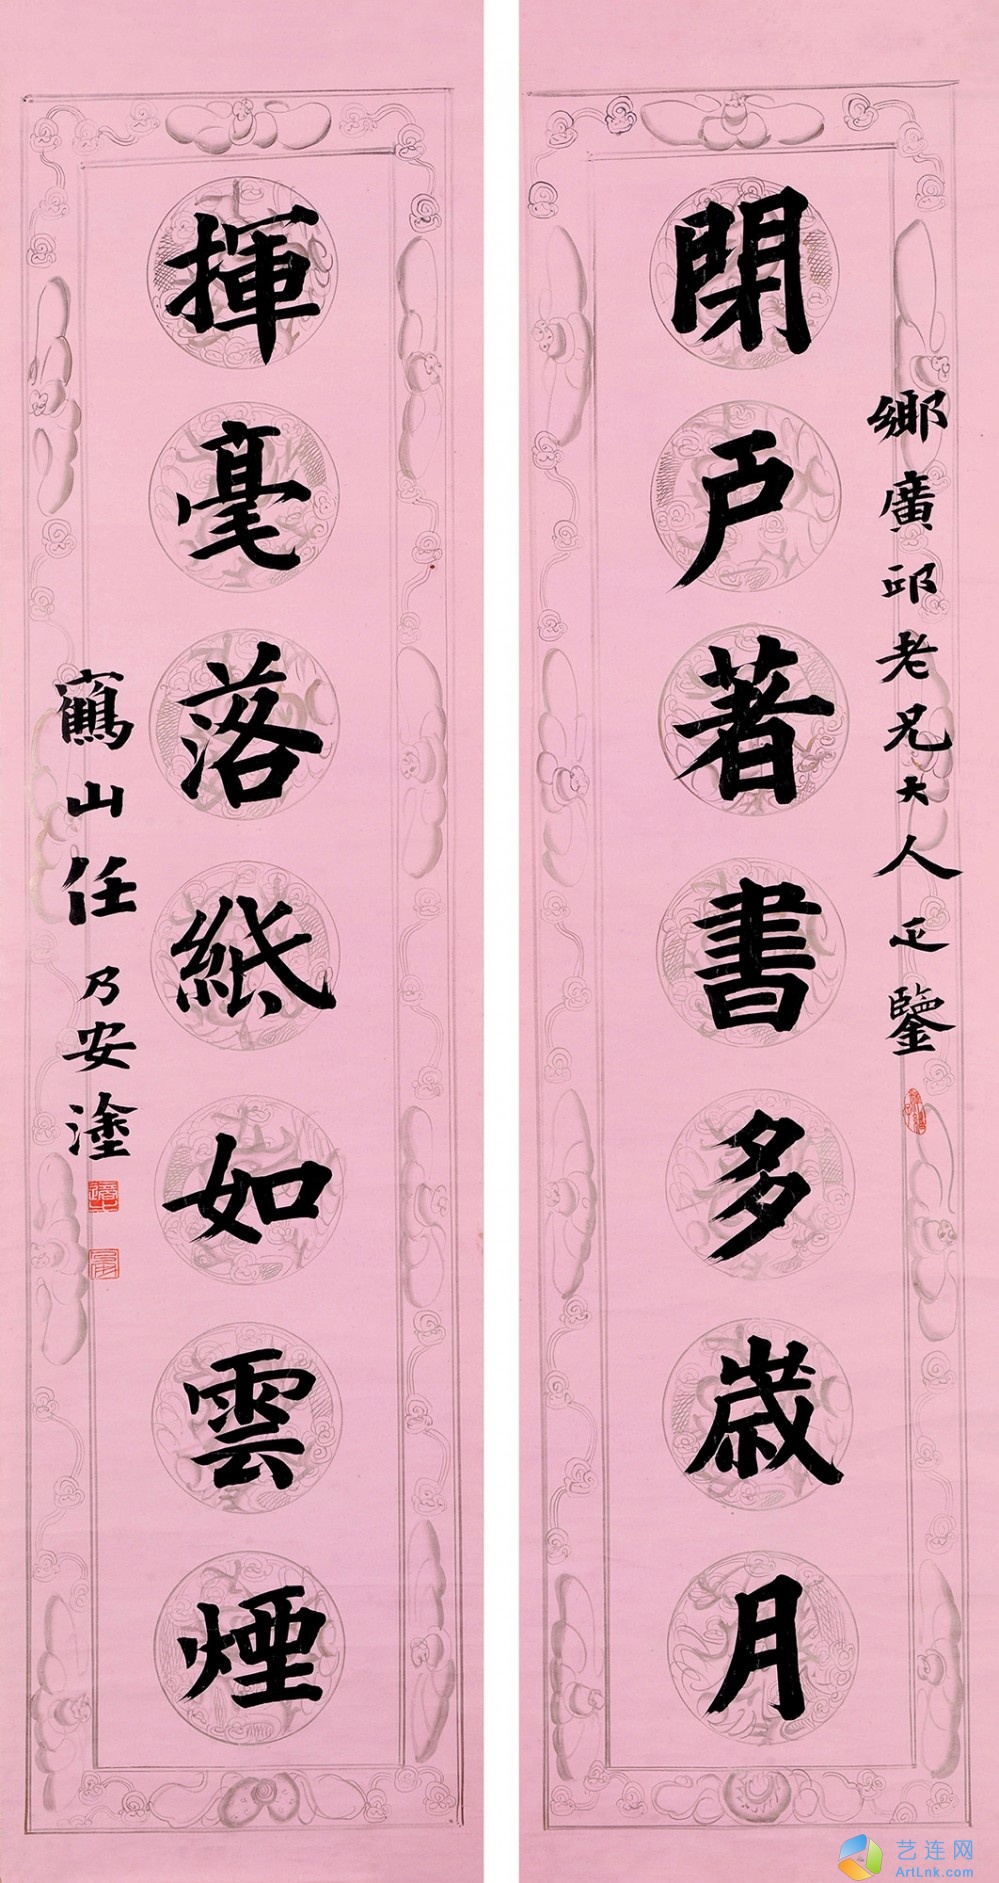 鄉廣邱老兄大人正鑒
閉戶著書多歲月
揮毫落紙如雲煙
鶴山任乃安塗
艺连网
ArtLnk.com